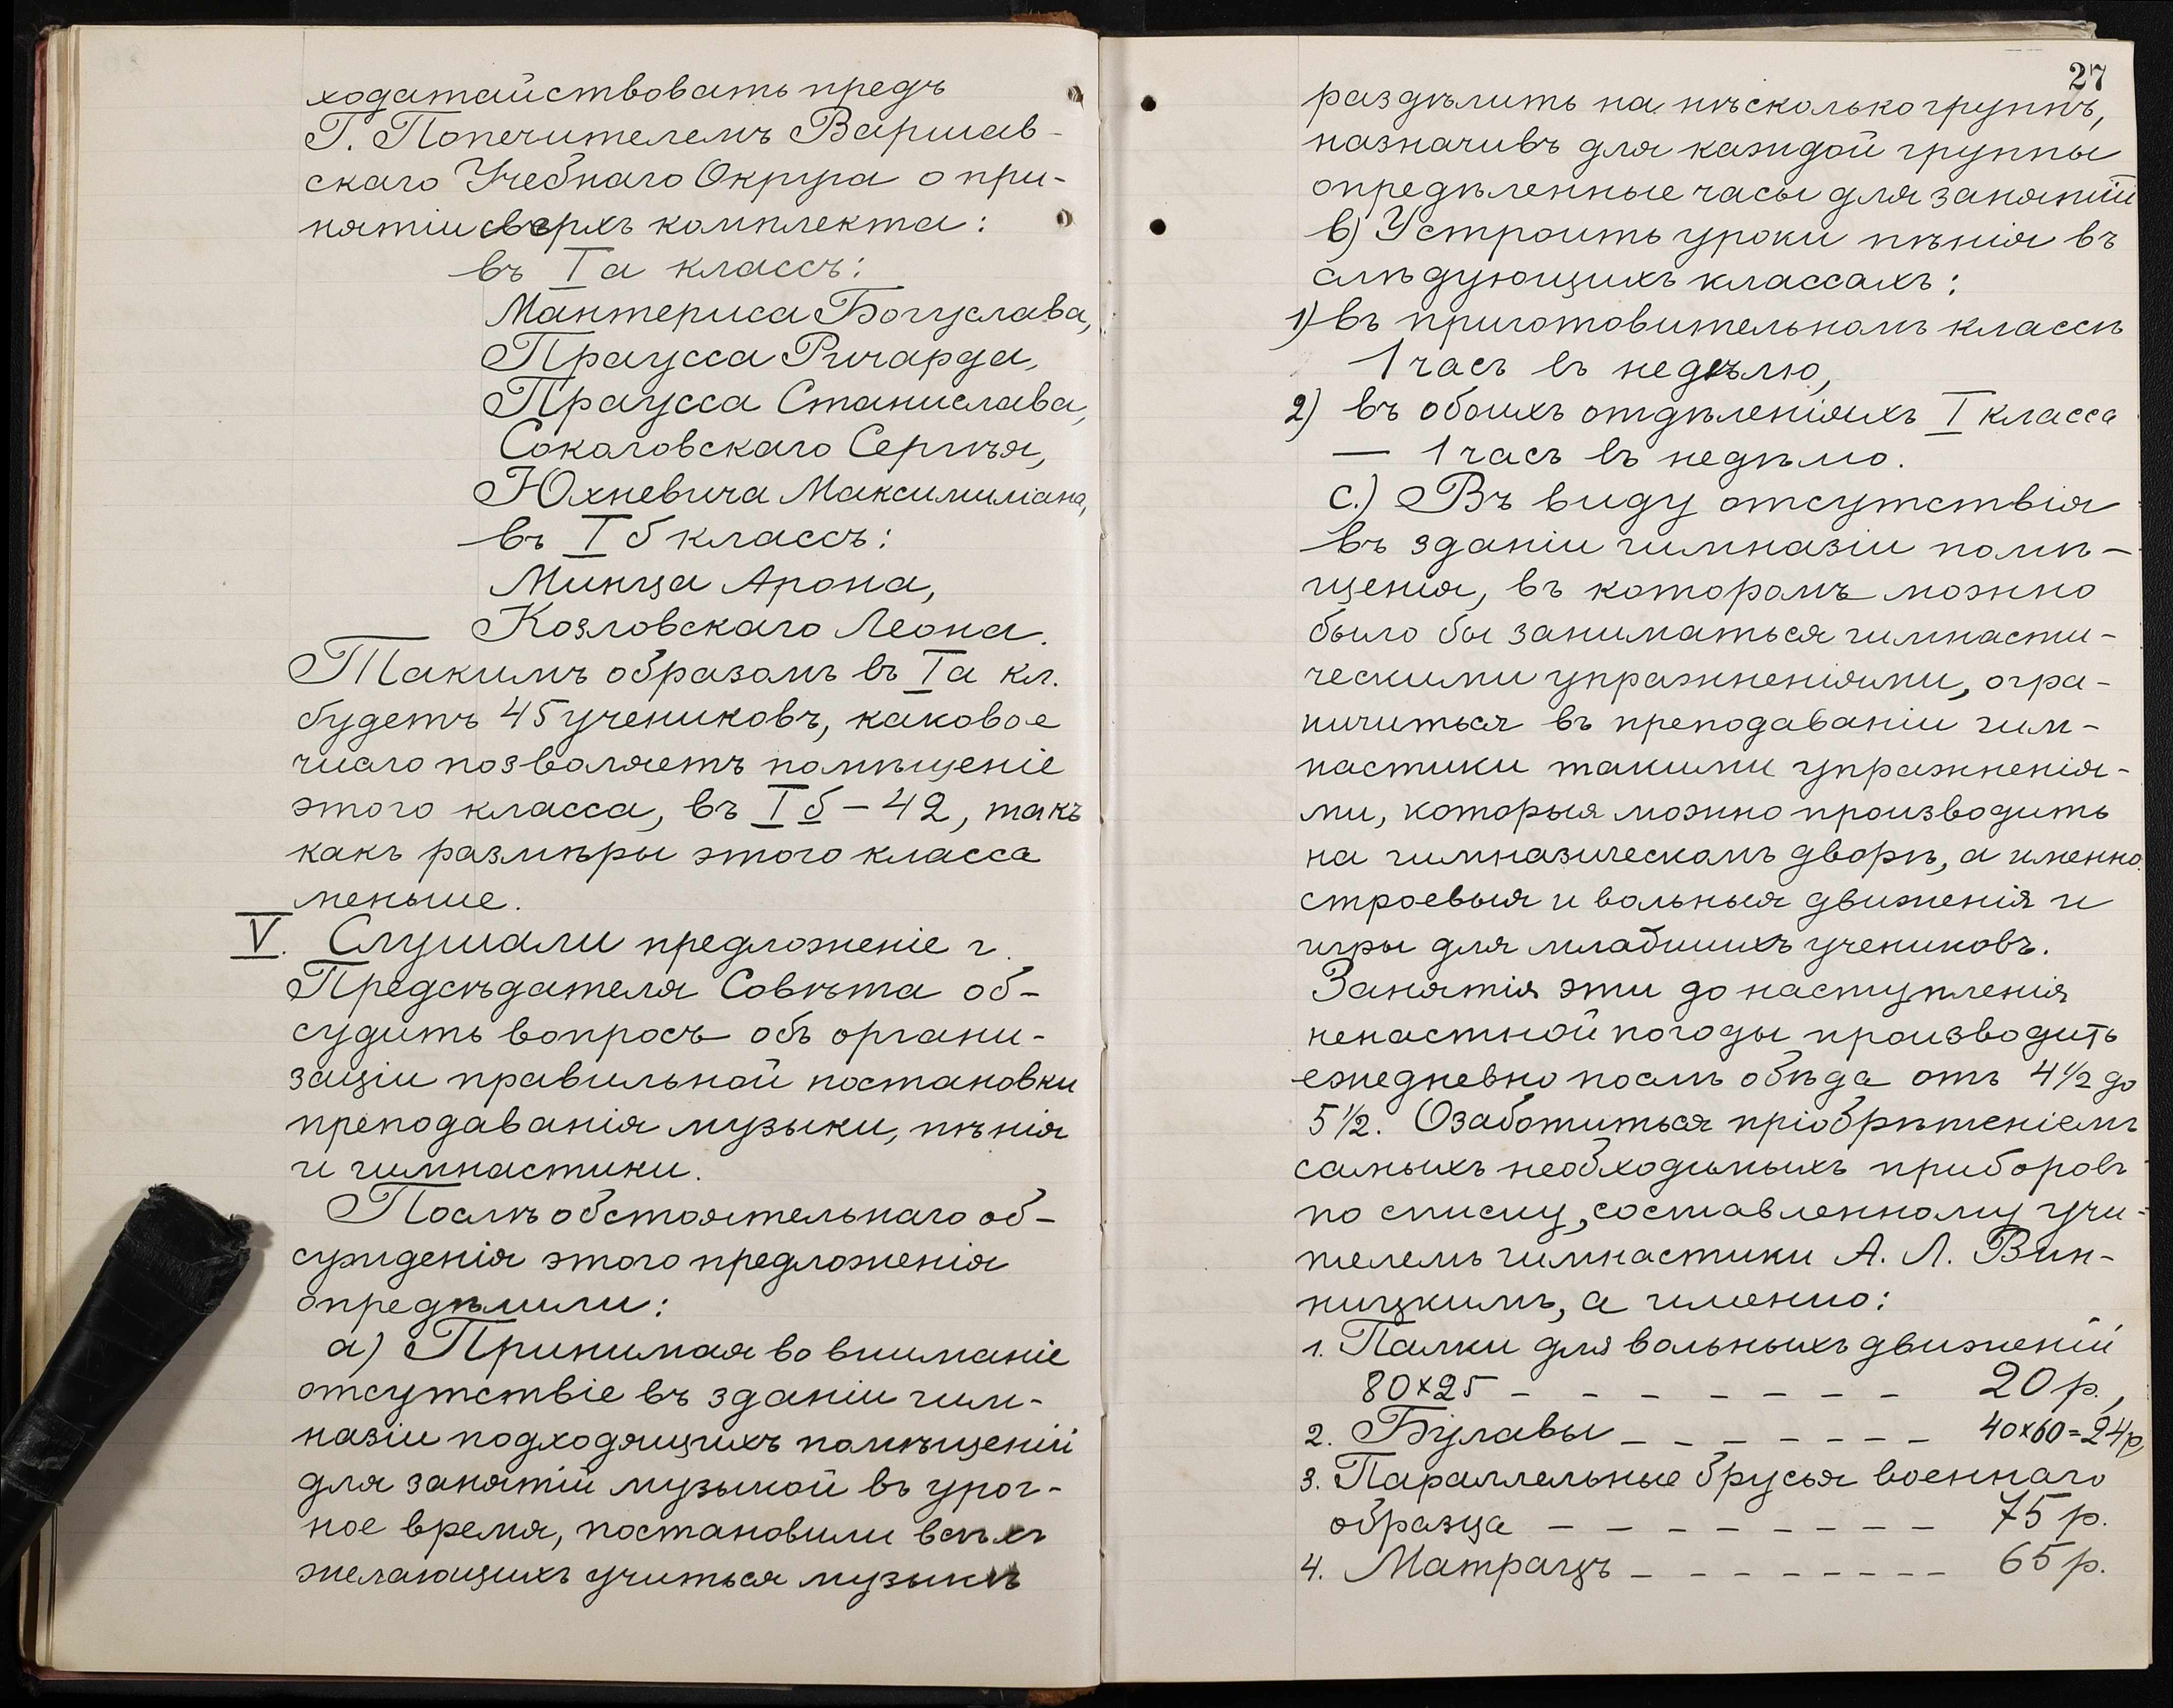 ходатайствовать предъ
Г. Попечителемъ Варшав-
скаго Учебнаго Округа о при-
нятіи сверхъ комплекта:
въ Iа классъ:
Мантериса Богуслава,
Праусса Ричарда,
Праусса Станислава,
Соколовскаго Сергѣя,
Юхневича Максимиліана,
въ Iб классъ:
Минца Арона,
Козловскаго Леона.
Такимъ образомъ въ Iа кл.
будетъ 45 учениковъ, каковое
число позволяетъ помѣщеніе
этого класса, въ Iб – 42, такъ
какъ размѣры этого класса
меньше.
V. Слушали предложеніе г.
Предсѣдателя Совѣта об-
судить вопросъ объ органи-
заціи правильной постановки
преподаванія музыки, пѣнія
и гимнастики.
Послѣ обстоятельнаго об-
сужденія этого предложенія
опредѣлили:
а) Принимая во вниманіе
отсутствіе въ зданіи гим-
назіи подходящихъ помѣщеній
для занятій музыкой въ уроч-
ное время, постановили всѣхъ
желающихъ учиться музыкѣ
27
раздѣлить на нѣсколько группъ,
назначивъ для каждой группы
опредѣленные часы для занятій
в) Устроить уроки пѣнія въ
слѣдующихъ классахъ:
1) въ приготовительномъ классѣ
1 часъ въ недѣлю,
2) въ обоихъ отдѣленіяхъ I класса
— 1 часъ въ недѣлю.
с.) Въ виду отсутствія
въ зданіи гимназіи помѣ-
щенія, въ которомъ можно
было бы заниматься гимнасти-
ческими упражненіями, огра-
ничиться въ преподаваніи гим-
настики такими упражненія-
ми, которыя можно производить
на гимназическомъ дворѣ, а именно
строевыя и вольныя движенія и
игры для младшихъ учениковъ.
Занятія эти до наступленія
ненастной погоды производить
ежедневно послѣ обѣда отъ 4½ до
5½. Озаботиться пріобрѣтеніемъ
самыхъ необходимыхъ приборовъ
по списку, составленному учи-
телемъ гимнастики А. Л. Вин-
ницкимъ, а именно:
1. Палки для вольныхъ движеній
80×25 – – – – – – – – 20 р.,
2. Булавы – – – – – – – 40×60=24 р,
3. Параллельные брусья военнаго
образца – – – – – – – – 75 р.
4. Матрацъ – – – – – – – – 65 р.